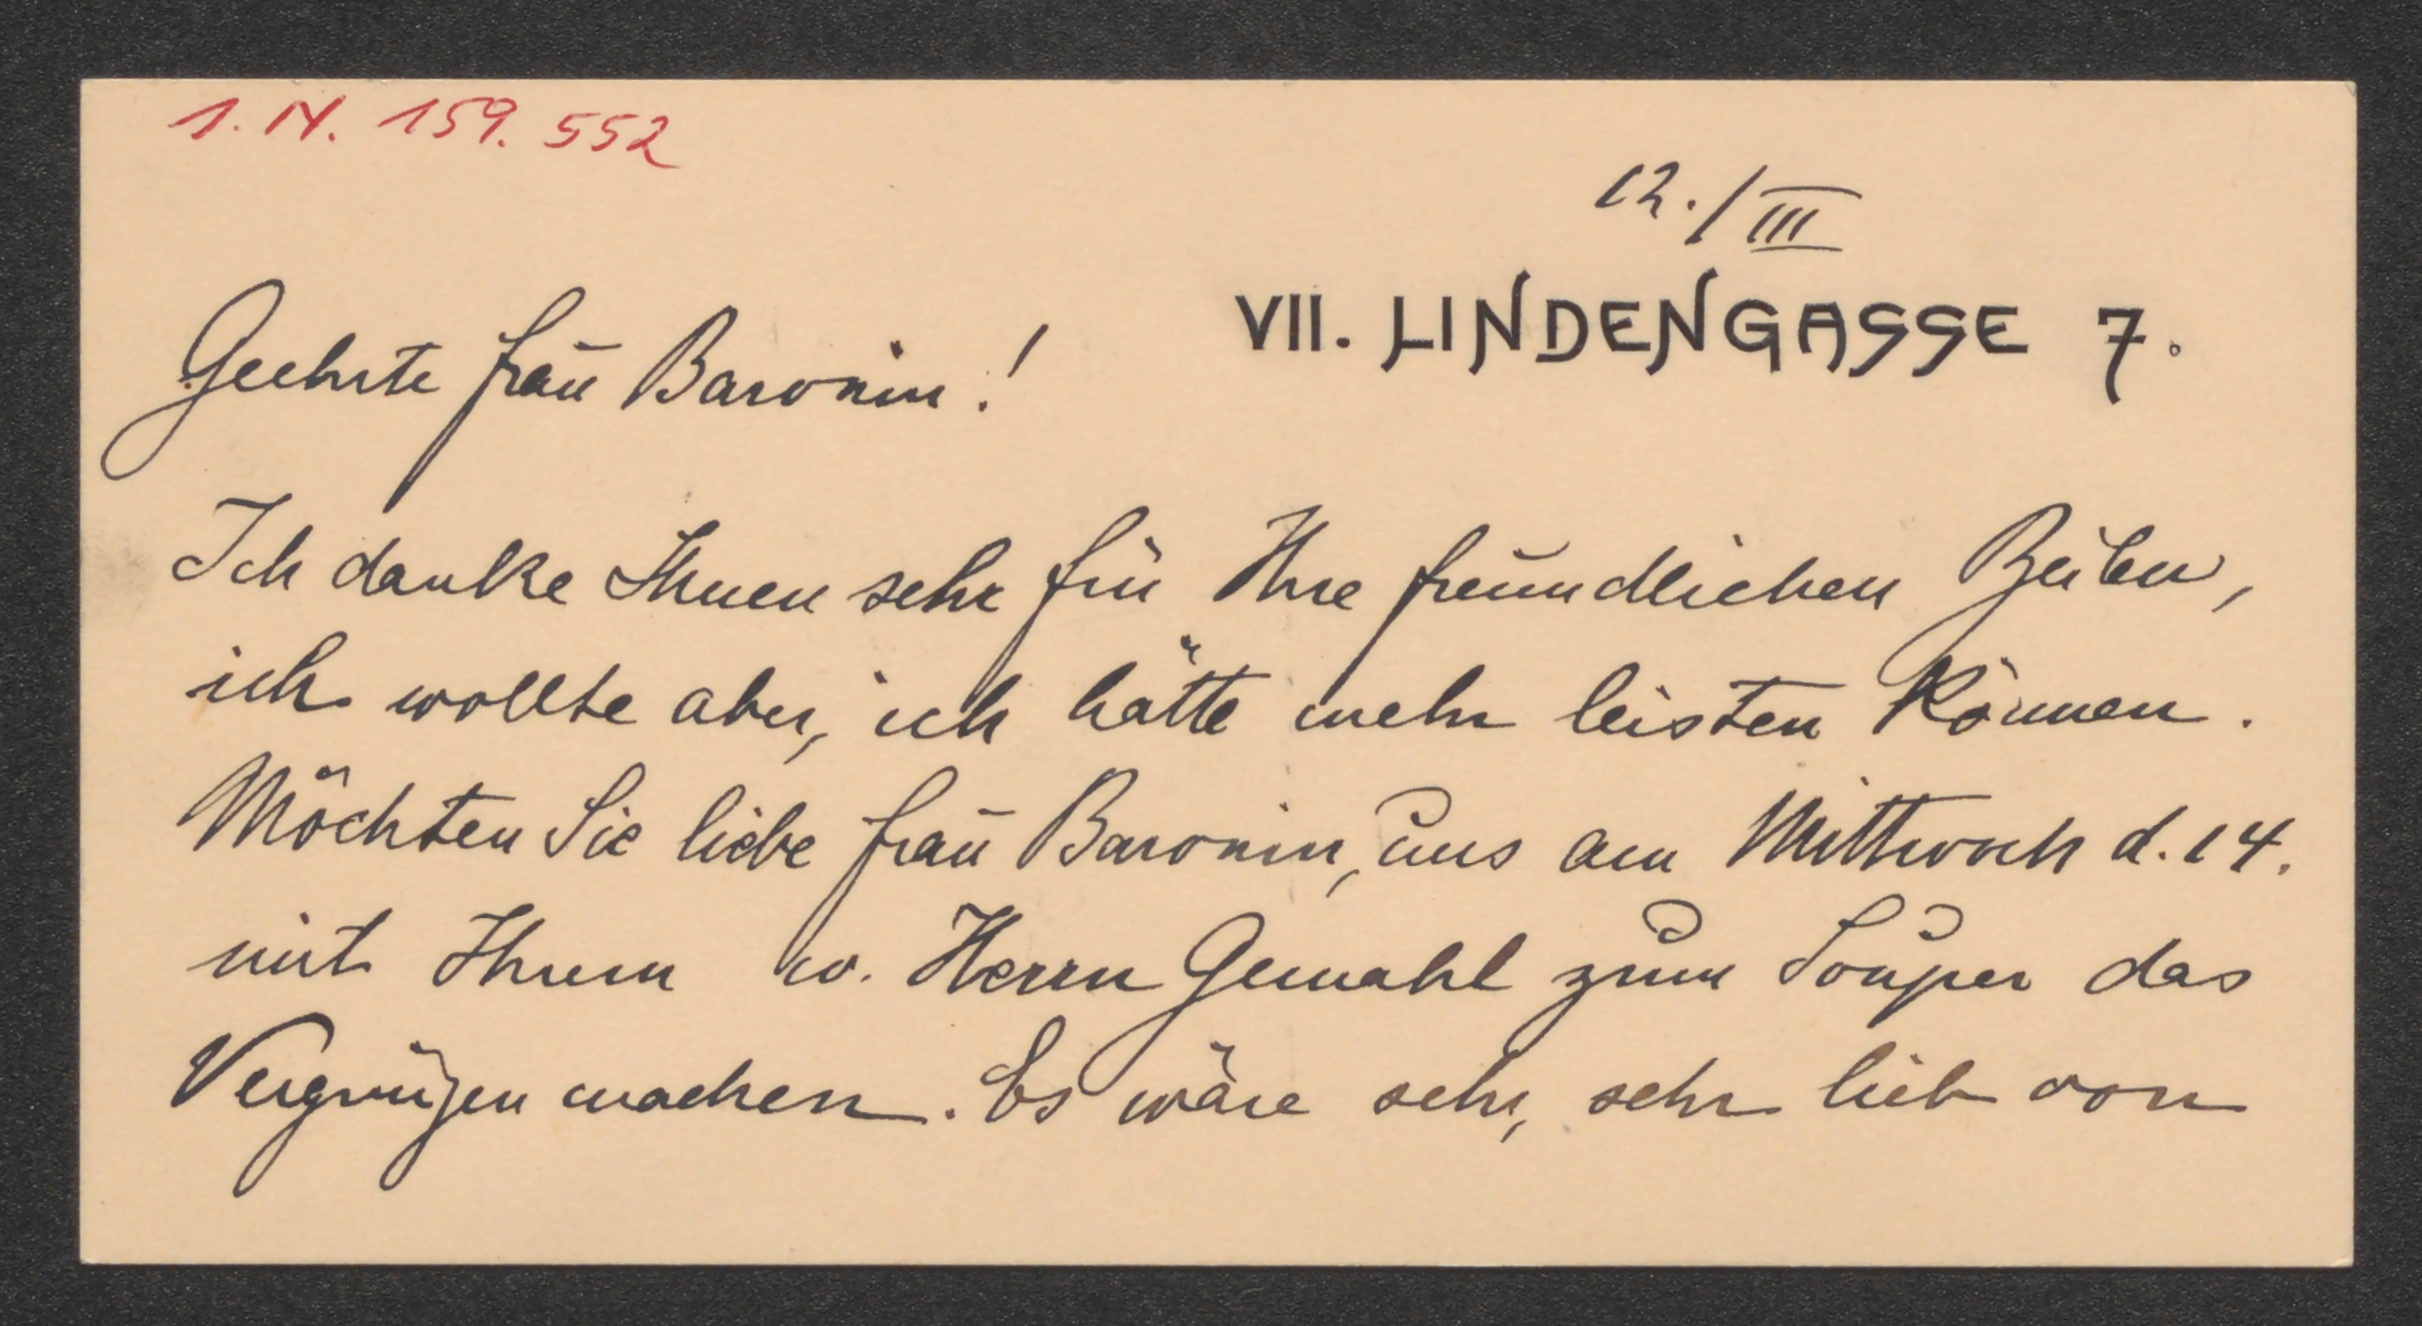 I. N. 159.552
12./III
VII. LINDENGASSE 7.
Geehrte Frau Baronin!
Ich danke Ihnen sehr für Ihre freundlichen Zeilen,
ich wollte aber, ich hätte mehr leisten können.
Möchten Sie liebe Frau Baronin, uns am Mittwoch d. 14.
mit Ihrem w. Herrn Gemahl zum Souper das
Vergnügen machen. Es wäre sehr, sehr lieb von